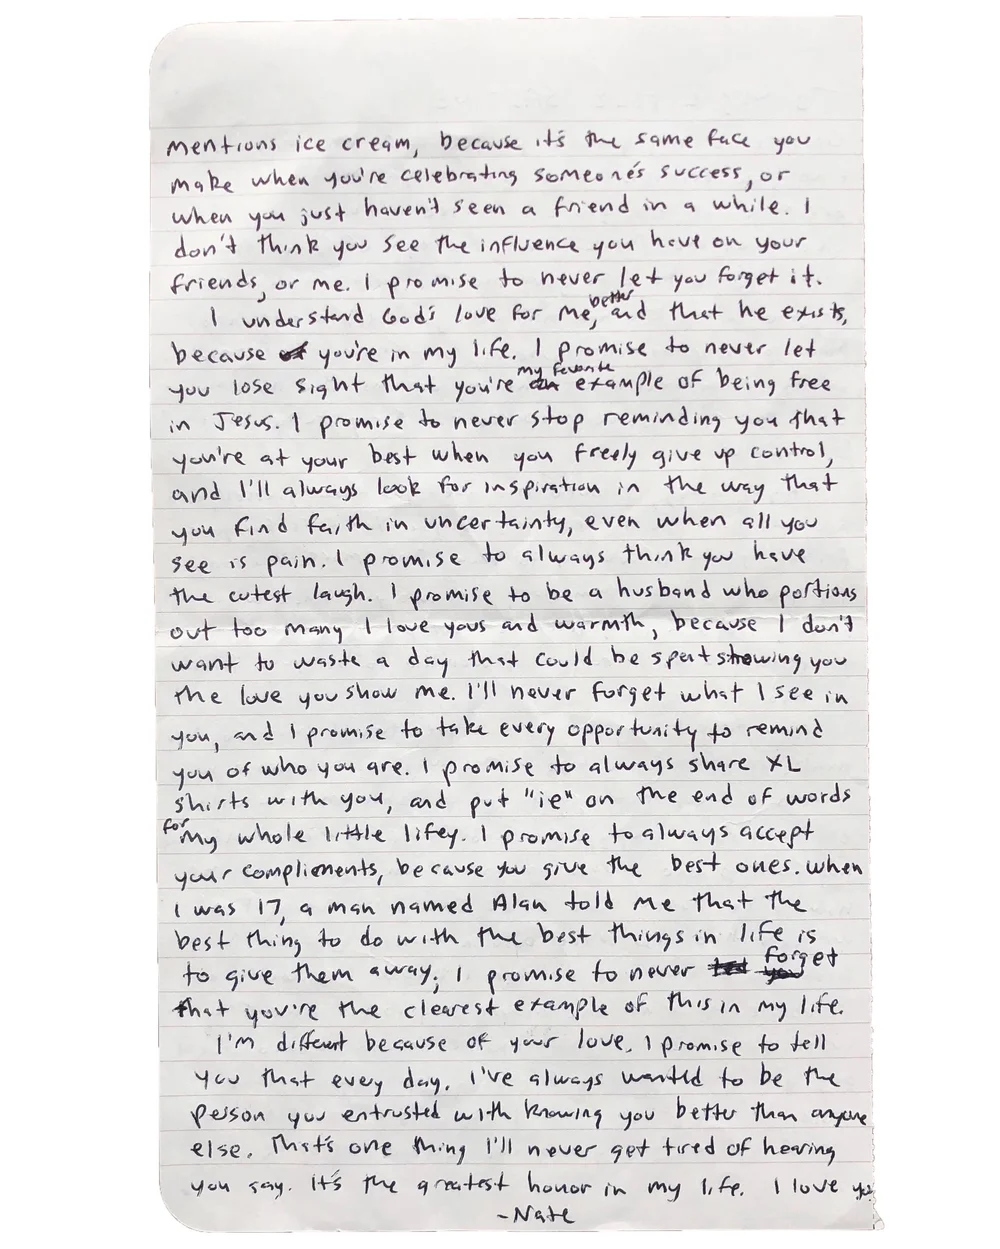 mentions ice cream, because it's the same face you
make when you're celebrating someone's success, or
when you just haven't seen a friend in a while. I
don't think you see the influence you have on your
friends, or me. I promise to never let you forget it.
I understand God's love for me, better and that he exists,
because you're in my life. I promise to never let
you lose sight that you're my favorite example of being free
in Jesus. I promise to never stop reminding you that
you're at your best when you freely give up control,
and I'll always look for inspiration in the way that
you find faith in uncertainty, even when all you
see is pain. I promise to always think you have
the cutest laugh. I promise to be a husband who portions
out too many I love yous and warmth, because I don't
want to waste a day that could be spent showing you
the love you show me. I'll never forget what I see in
you, and I promise to take every opportunity to remind
you of who you are. I promise to always share XL
shirts with you, and put "ie" on the end of words
for my whole little lifey. I promise to always accept
your compliments, because you give the best ones. When
I was 17, a man named Alan told me that the
best thing to do with the best things in life is
to give them away; I promise to never forget
that you're the clearest example of this in my life.
I'm different because of your love. I promise to tell
you that every day. I've always wanted to be the
person you entrusted with knowing you better than anyone
else. That's one thing I'll never get tired of hearing
you say. It's the greatest honor in my life. I love you
-Nate